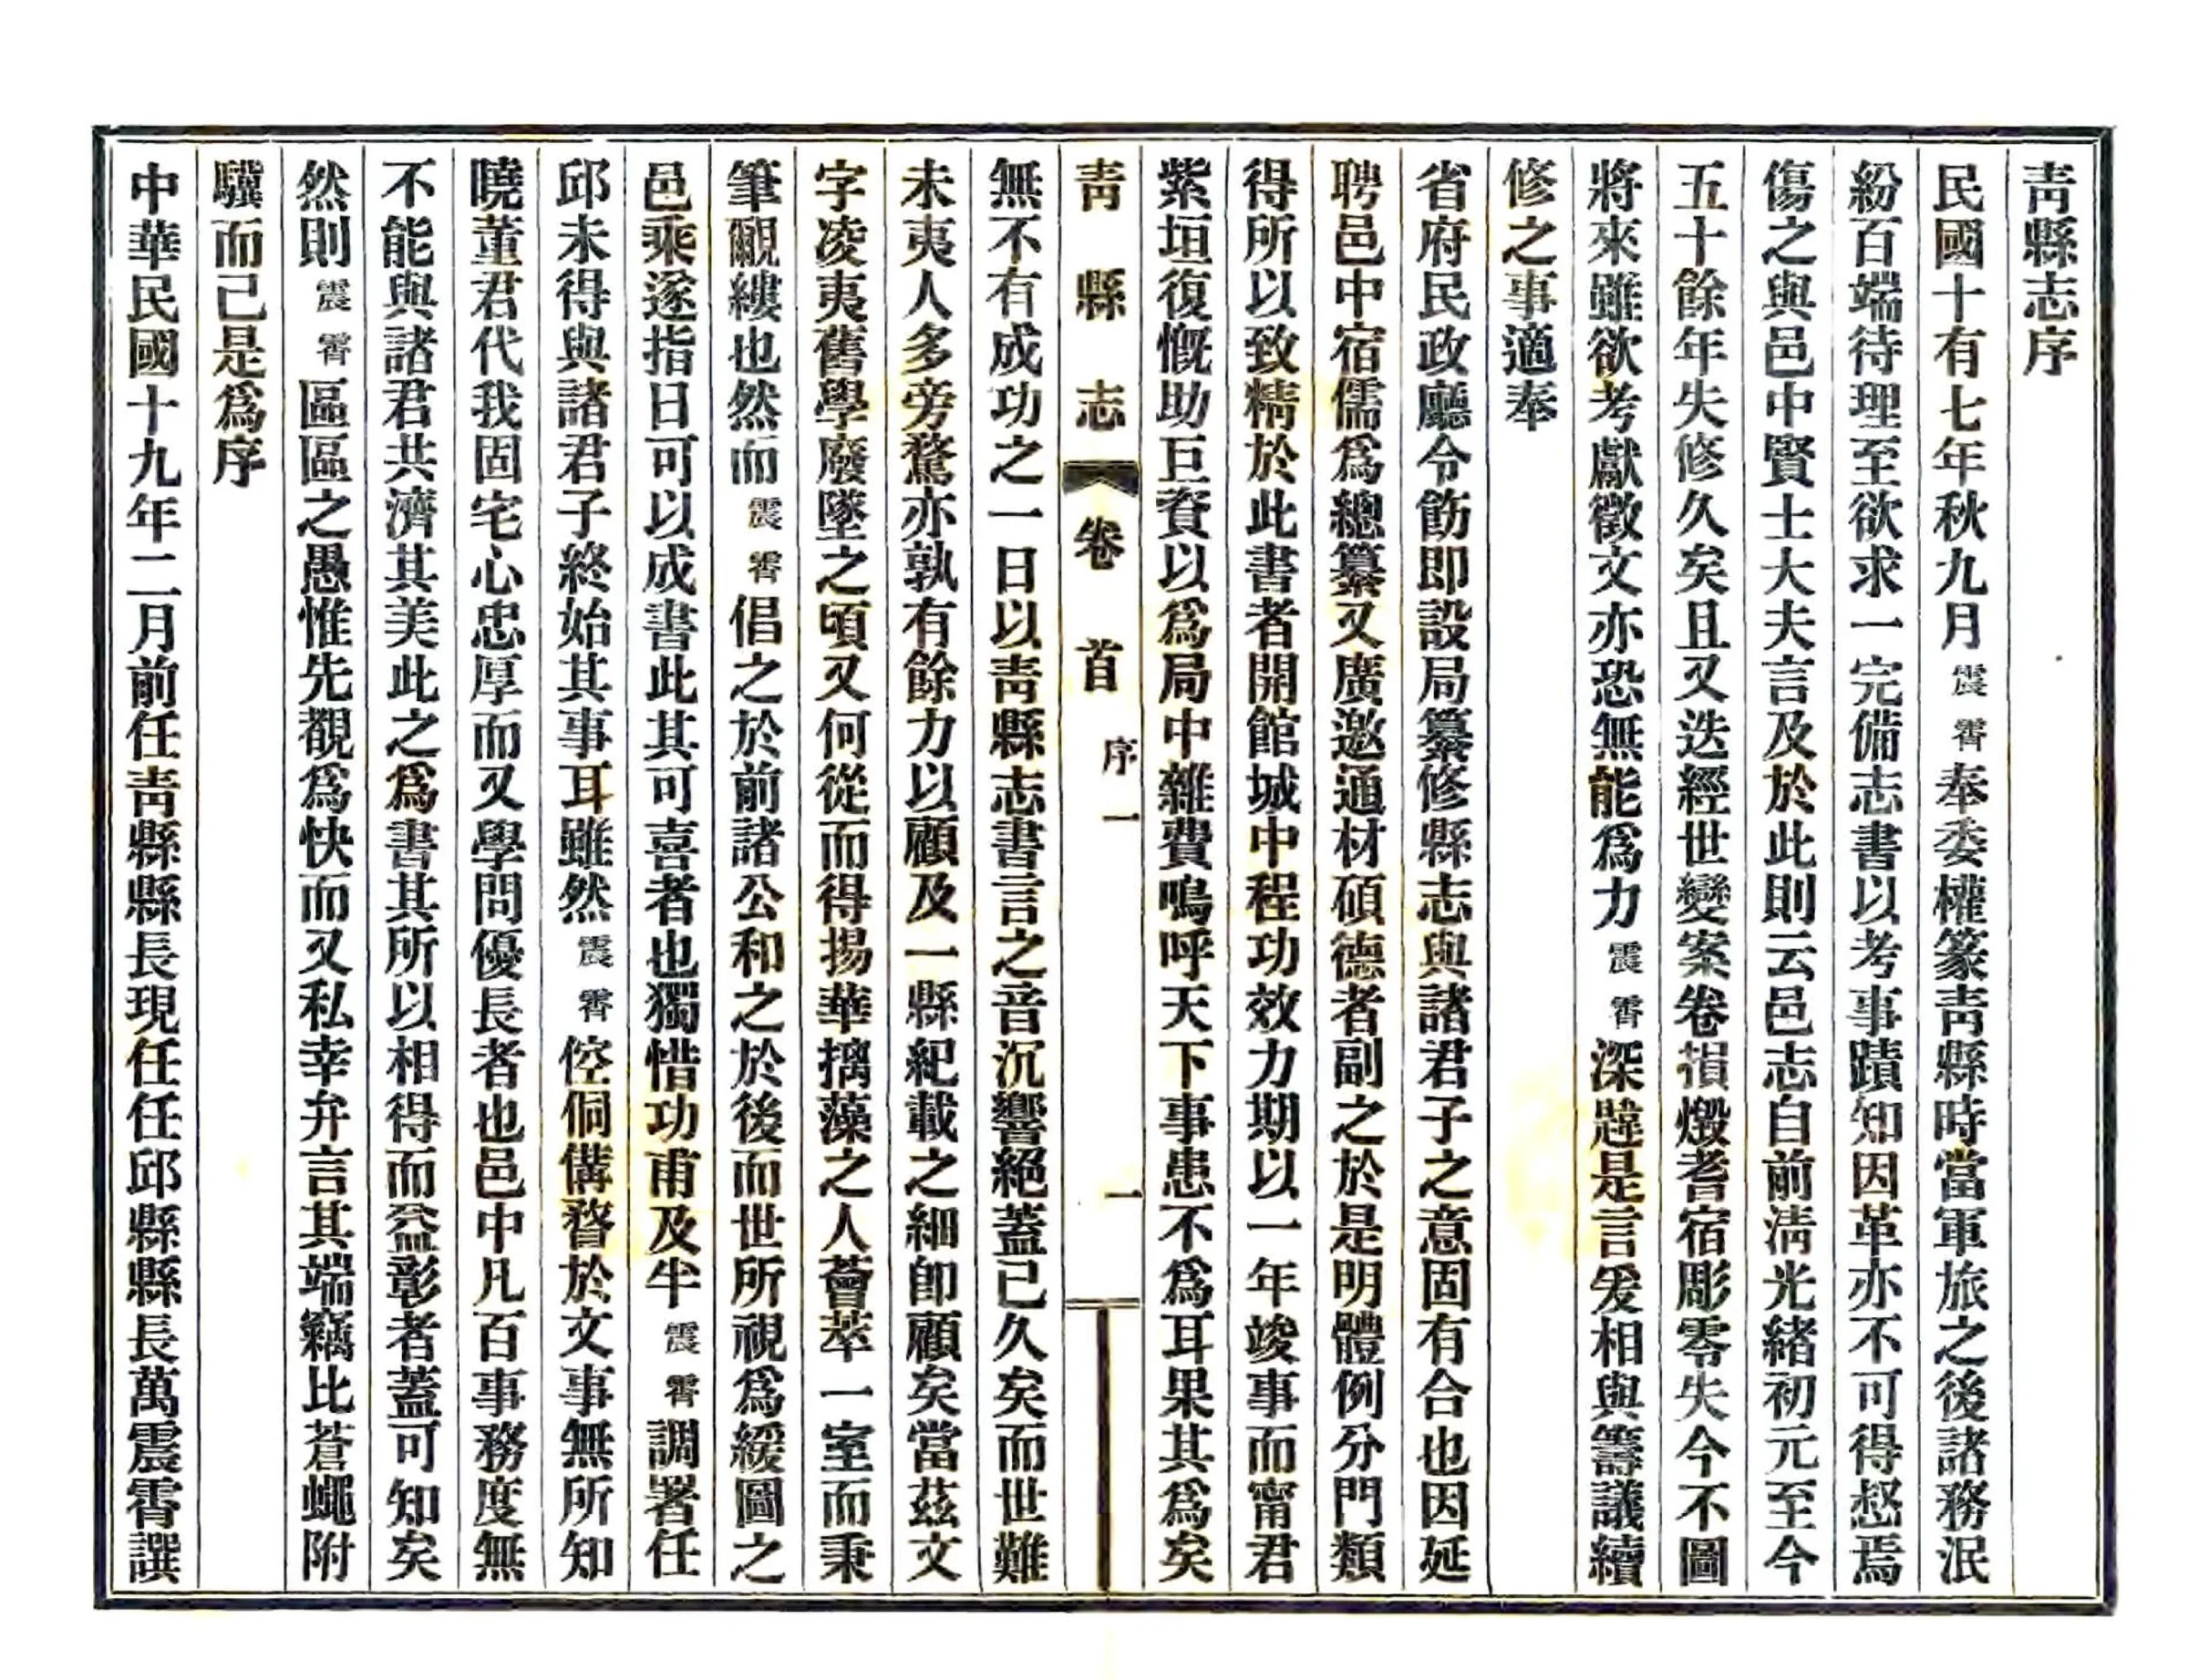 靑縣志序
民國十有七年秋九月震霄奉委權篆靑縣時當軍旅之後諸務泯
紛百端待理至欲求一完備志書以考事蹟知因革亦不可得惄焉
傷之與邑中賢士大夫言及於此則云邑志自前淸光緖初元至今
五十餘年失修久矣且又迭經世變案卷損燬耆宿彫零失今不圖
將來雖欲考獻徵文亦恐無能爲力震霄深韙是言爰相與籌議續
修之事適奉
省府民政廳令飭即設局纂修縣志與諸君子之意固有合也因延
聘邑中宿儒爲總纂又廣邀通材碩德者副之於是明體例分門類
得所以致精於此書者開館城中程功效力期以一年竣事而甯君
紫垣復慨助巨資以爲局中雜費嗚呼天下事患不爲耳果其爲矣
靑縣志 卷首 序一 一
無不有成功之一日以靑縣志書言之音沉響絕蓋已久矣而世難
未夷人多旁騖亦孰有餘力以顧及一縣紀載之細卽顧矣當茲文
字凌夷舊學廢墜之頃又何從而得揚華摛藻之人薈萃一室而秉
筆覼縷也然而震霄倡之於前諸公和之於後而世所視爲緩圖之
邑乘遂指日可以成書此其可喜者也獨惜功甫及半震霄調署任
邱未得與諸君子終始其事耳雖然震霄倥侗傋瞀於文事無所知
曉董君代我固宅心忠厚而又學問優長者也邑中凡百事務度無
不能與諸君共濟其美此之爲書其所以相得而益彰者蓋可知矣
然則震霄區區之愚惟先覩爲快而又私幸弁言其端竊比蒼蠅附
驥而已是爲序
中華民國十九年二月前任靑縣縣長現任任邱縣縣長萬震霄譔